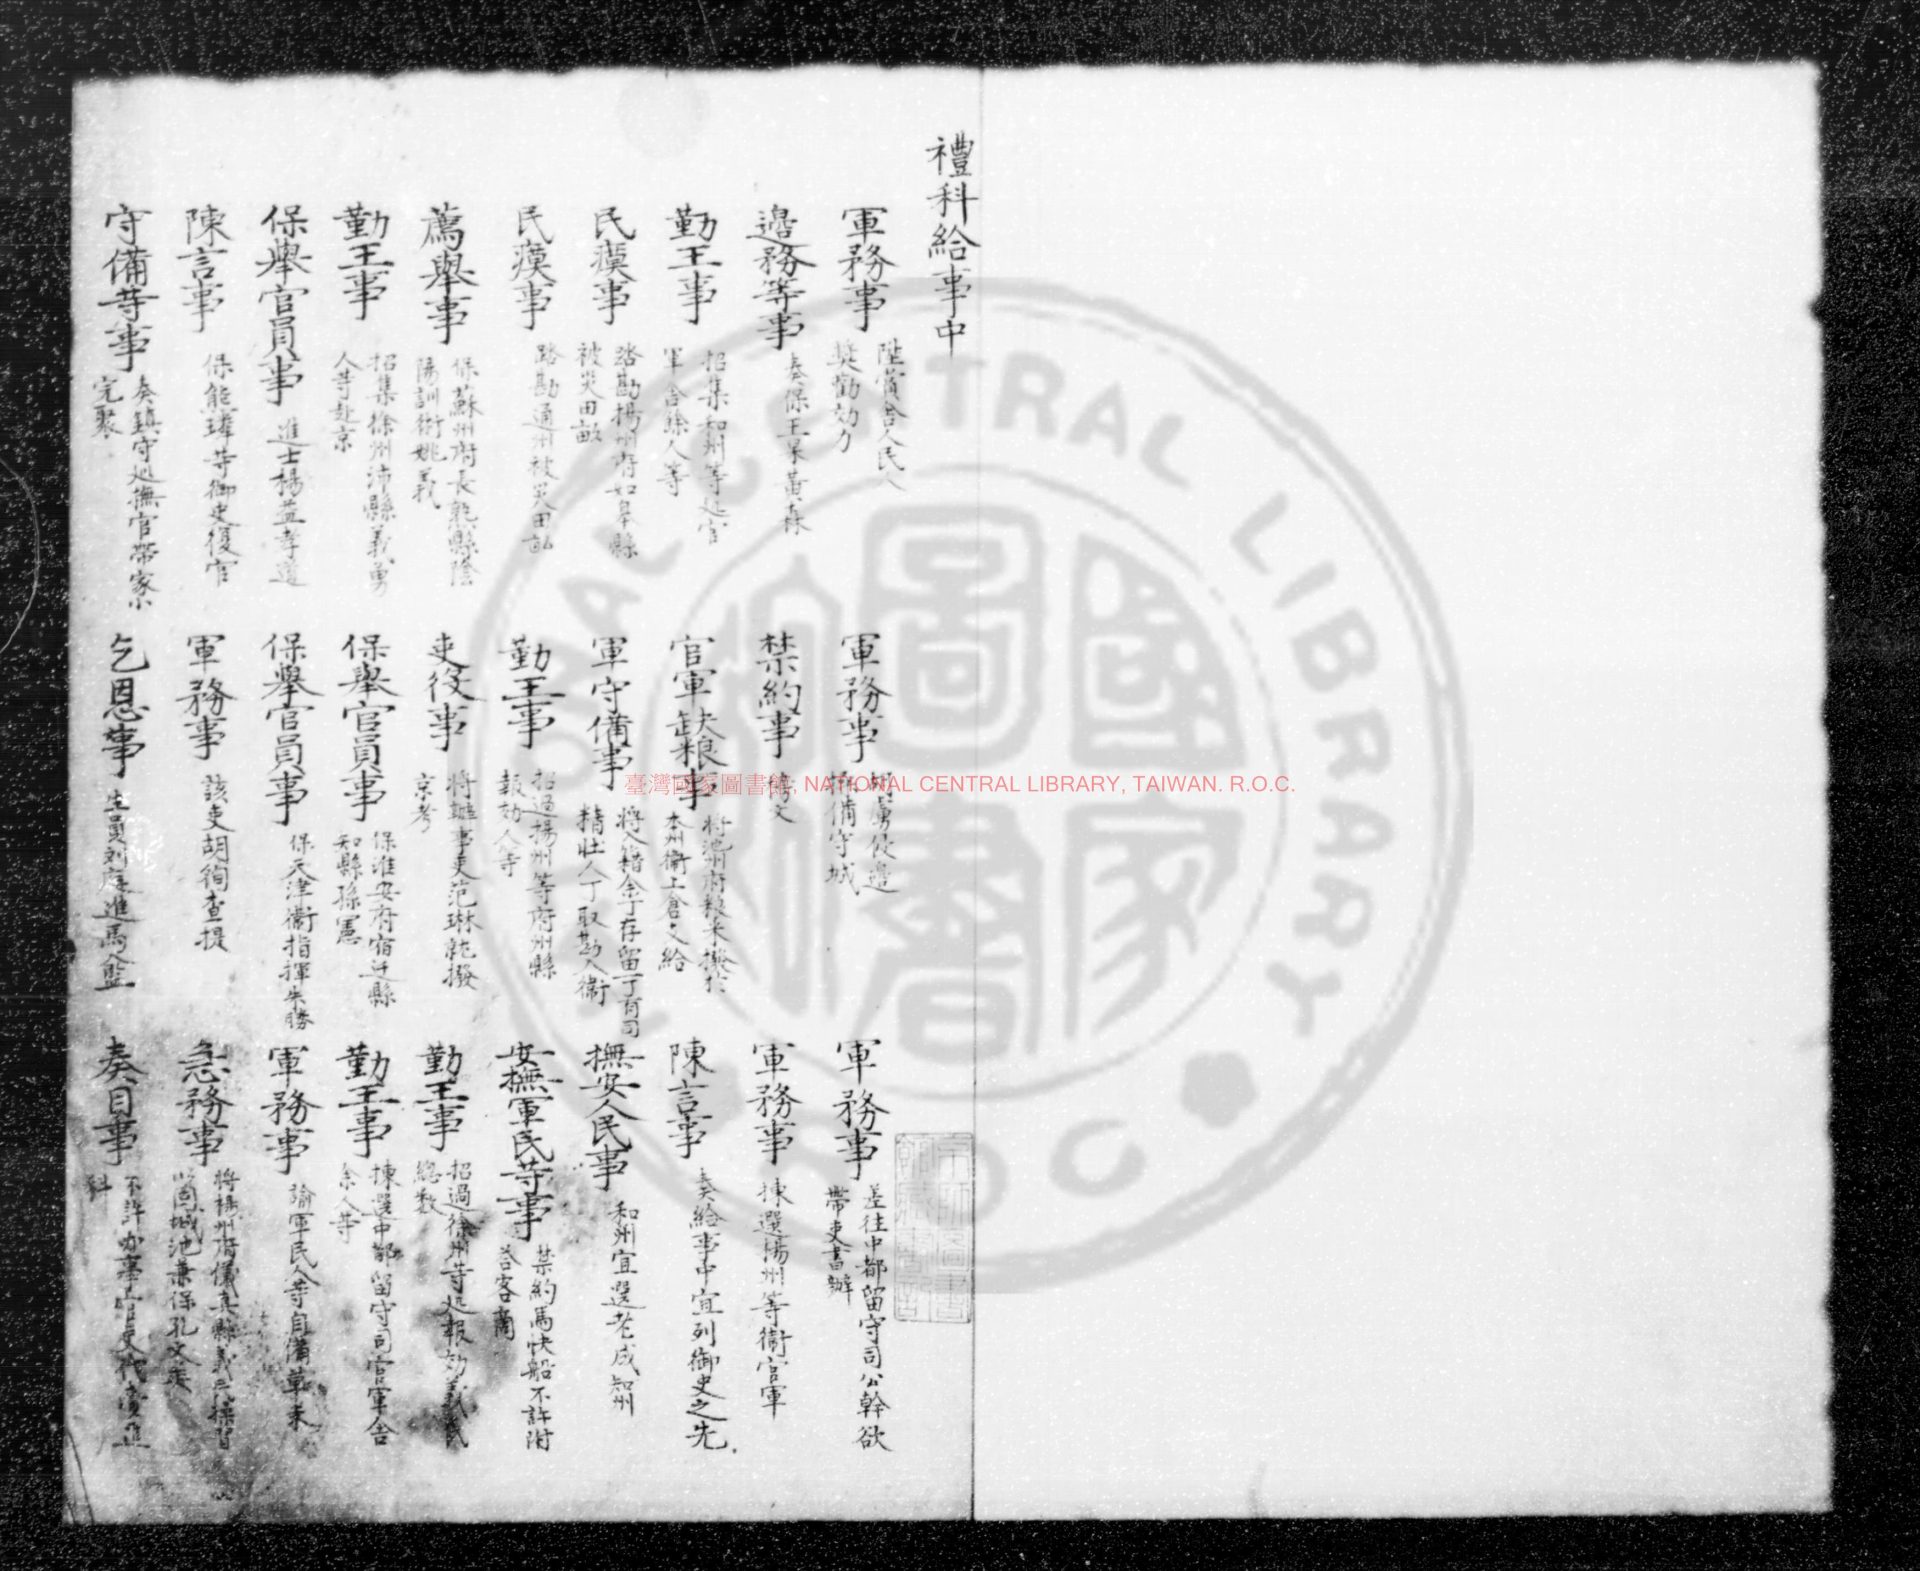 禮科給事中
軍務事 陞賞舍人民人奬勸効力
軍務事 胡虜侵邊 備守城
軍務事 差往中都留守司公幹欲帶吏書辦
邊務等事 奏保王杲黃森
禁約事
軍務事 揀選揚州等衛官軍
勤王事 招集和州等処官軍舍餘人等
官軍缺粮事 將池州府粮米撥於本州衛上倉支給
陳言事 奏給事中宜列御史之先
民瘼事 踏勘揚州府如皋縣被災田畝
軍守備事 將入籍余丁存留一丁有司精壯人丁取勘入衛
撫安人民事 和州宜選老成知州
民瘼事 踏勘通州被災田畝
勤王事 招過揚州等府州縣報効人等
安撫軍民等事 禁約馬快船不許附荅客商
薦舉事 保蘇州府長熟縣陰陽訓術姚義
吏役事 將辦事吏范琳就撥京考
勤王事 招過徐州等処報効義民總數
勤王事 招集徐州沛縣義勇人等赴京
保舉官員事 保淮安府宿迁縣知縣孫憲
勤王事 揀選中都留守司官軍舍余人等
保舉官員事 進士楊益孝道
保舉官員事 保天津衛指揮朱勝
軍務事 諭軍民人等自備草末
陳言事 保能瑋等御史復官
軍務事 該吏胡徇查提
急務事 將揚州府儀真縣義民操習以固城池兼保孔文英
守備等事 奏鎮守廵撫官帶家小完聚
乞恩事 生員刘庭進馬入監
奏目事 不許办事官吏代賫進科
臺灣國家圖書館, NATIONAL CENTRAL LIBRARY, TAIWAN. R.O.C.
NATIONAL CENTRAL LIBRARY
國家圖書館